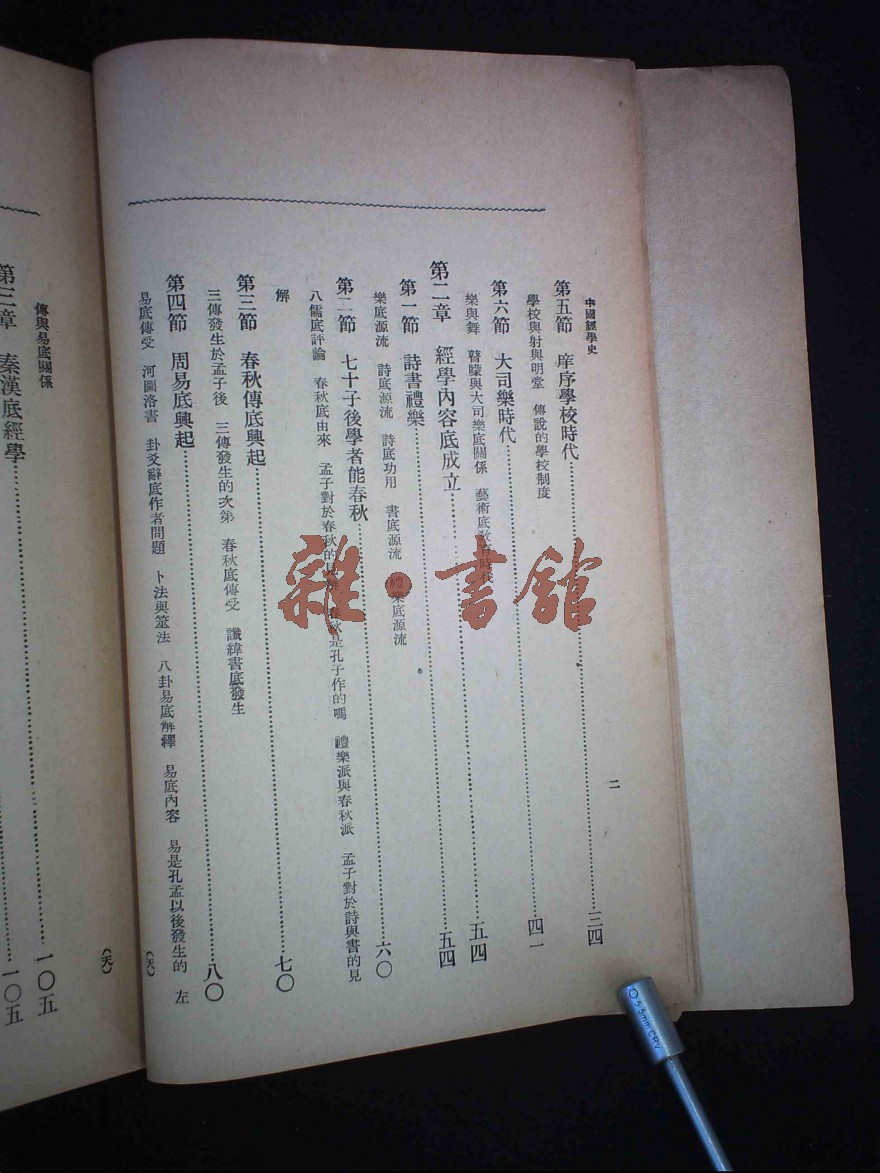 中國經學史
二
第五節 庠序學校時代 三四
學校與射與明堂 傳說的學校制度
第六節 大司樂時代 四一
樂與舞 瞽矇與大司樂底關係 藝術底教育時代
第二章 經學內容底成立 五四
第一節 詩書禮樂 五四
樂底源流 詩底源流 詩底功用 書底源流 禮樂底源流
第二節 七十子後學者能春秋 六〇
八儒底評論 春秋底由來 孟子對於春秋的見解 春秋是孔子作的嗎 禮樂派與春秋派 孟子對於詩與書的見
解
第三節 春秋傳底興起 七〇
三傳發生於孟子後 三傳發生的次第 春秋底傳受 讖緯書底發生
第四節 周易底興起 八〇
易底傳受 河圖洛書 卦爻辭底作者問題 卜法與筮法 八卦易底解釋 易底內容 易是孔孟以後發生的 左
(天)
傳與易底關係
第三章 秦漢底經學 一〇五
一〇五
(天)
雜·書館
5.5mm CRV